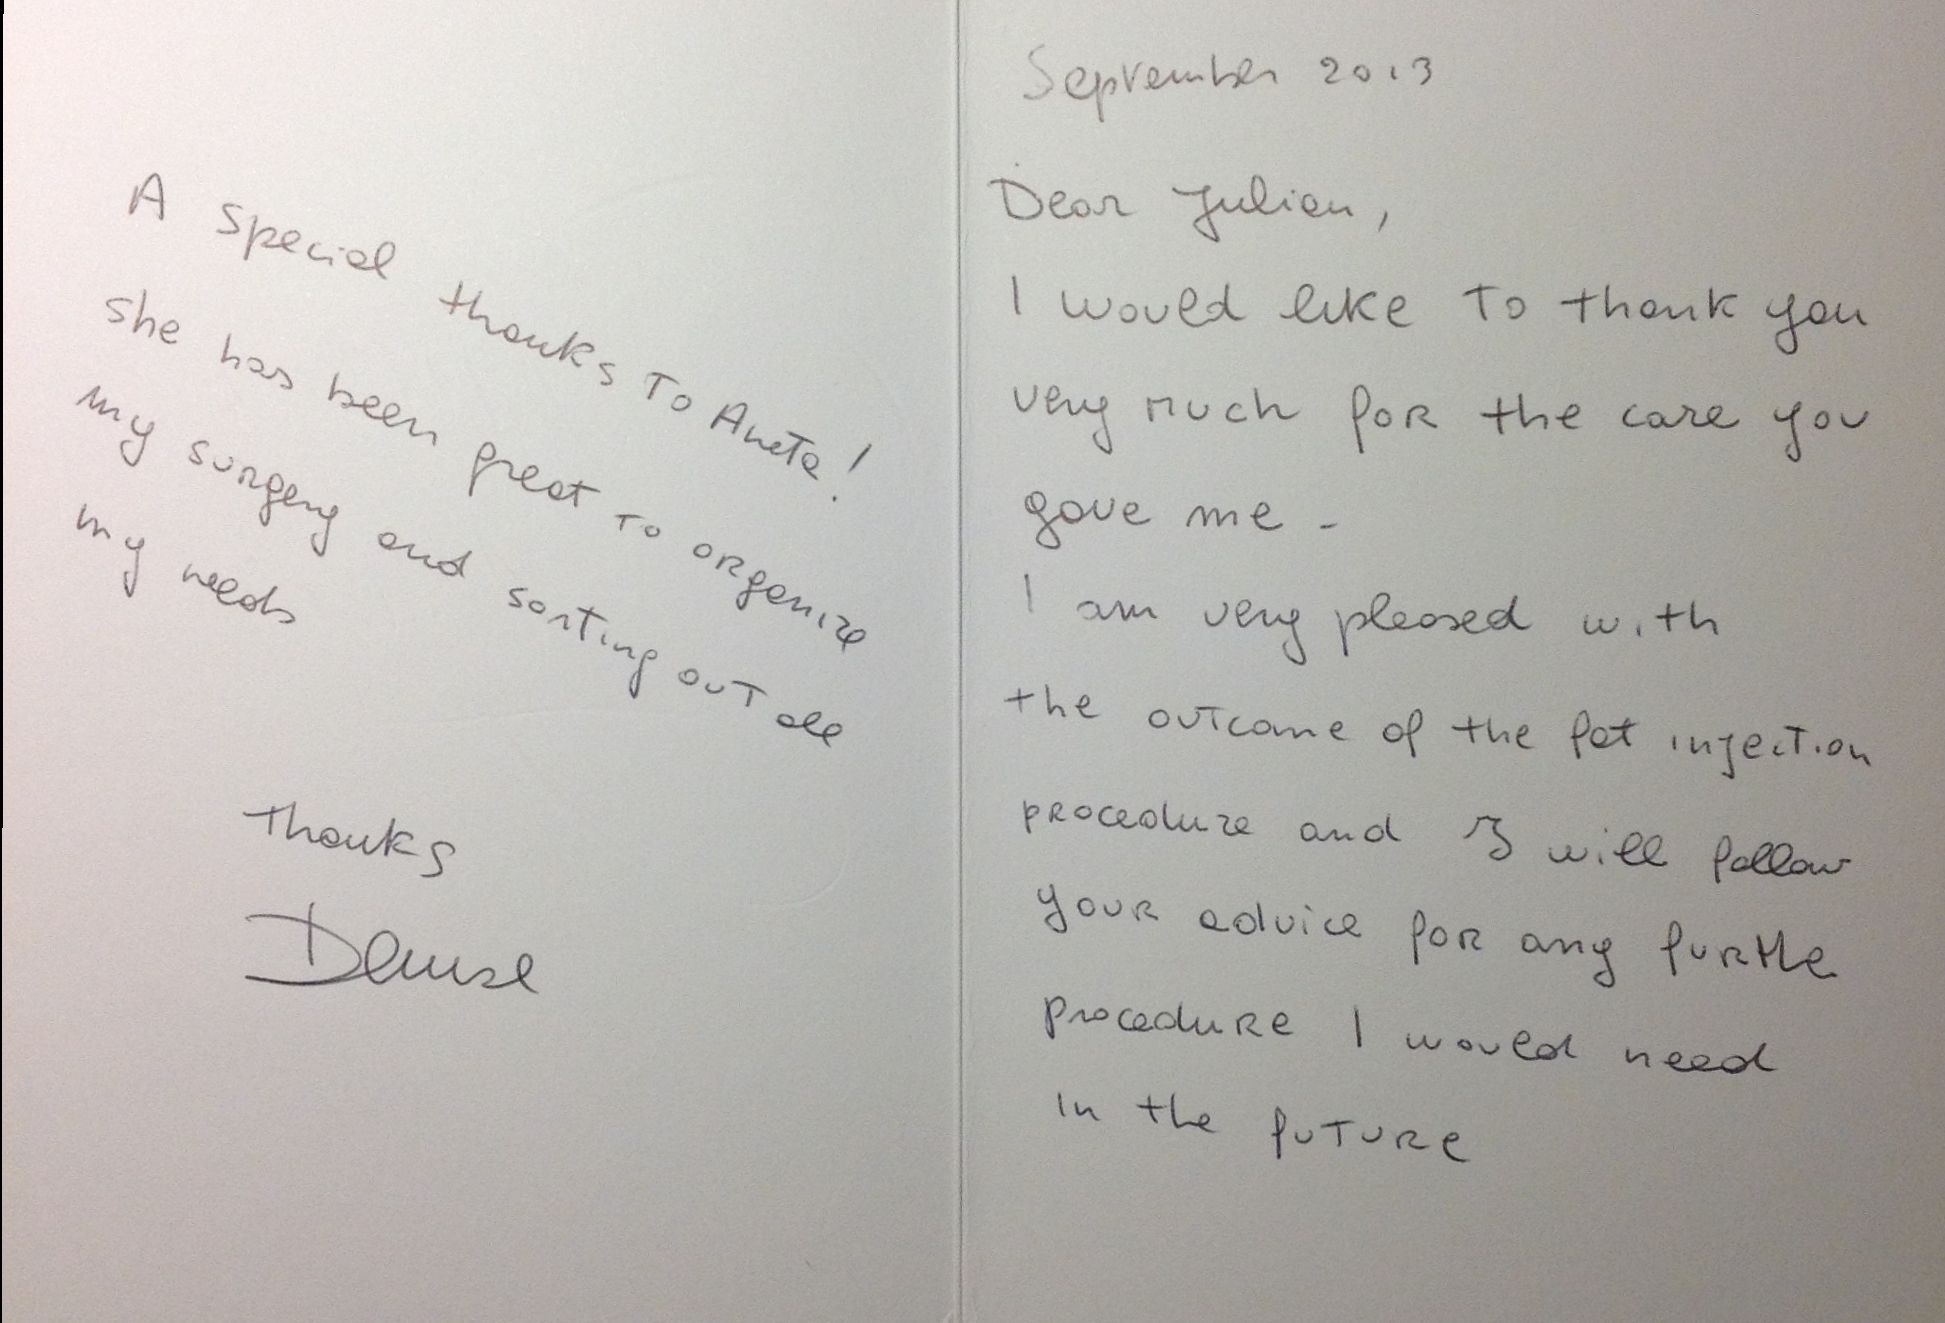 A special thanks to Aneta!
she has been great to organize
my surgery and sorting out all
my needs
thanks
Denise
September 2013
Dear Julian,
I would like to thank you
very much for the care you
gave me -
I am very pleased with
the outcome of the fat injection
procedure and I will follow
your advice for any furthe
procedure I would need
in the future